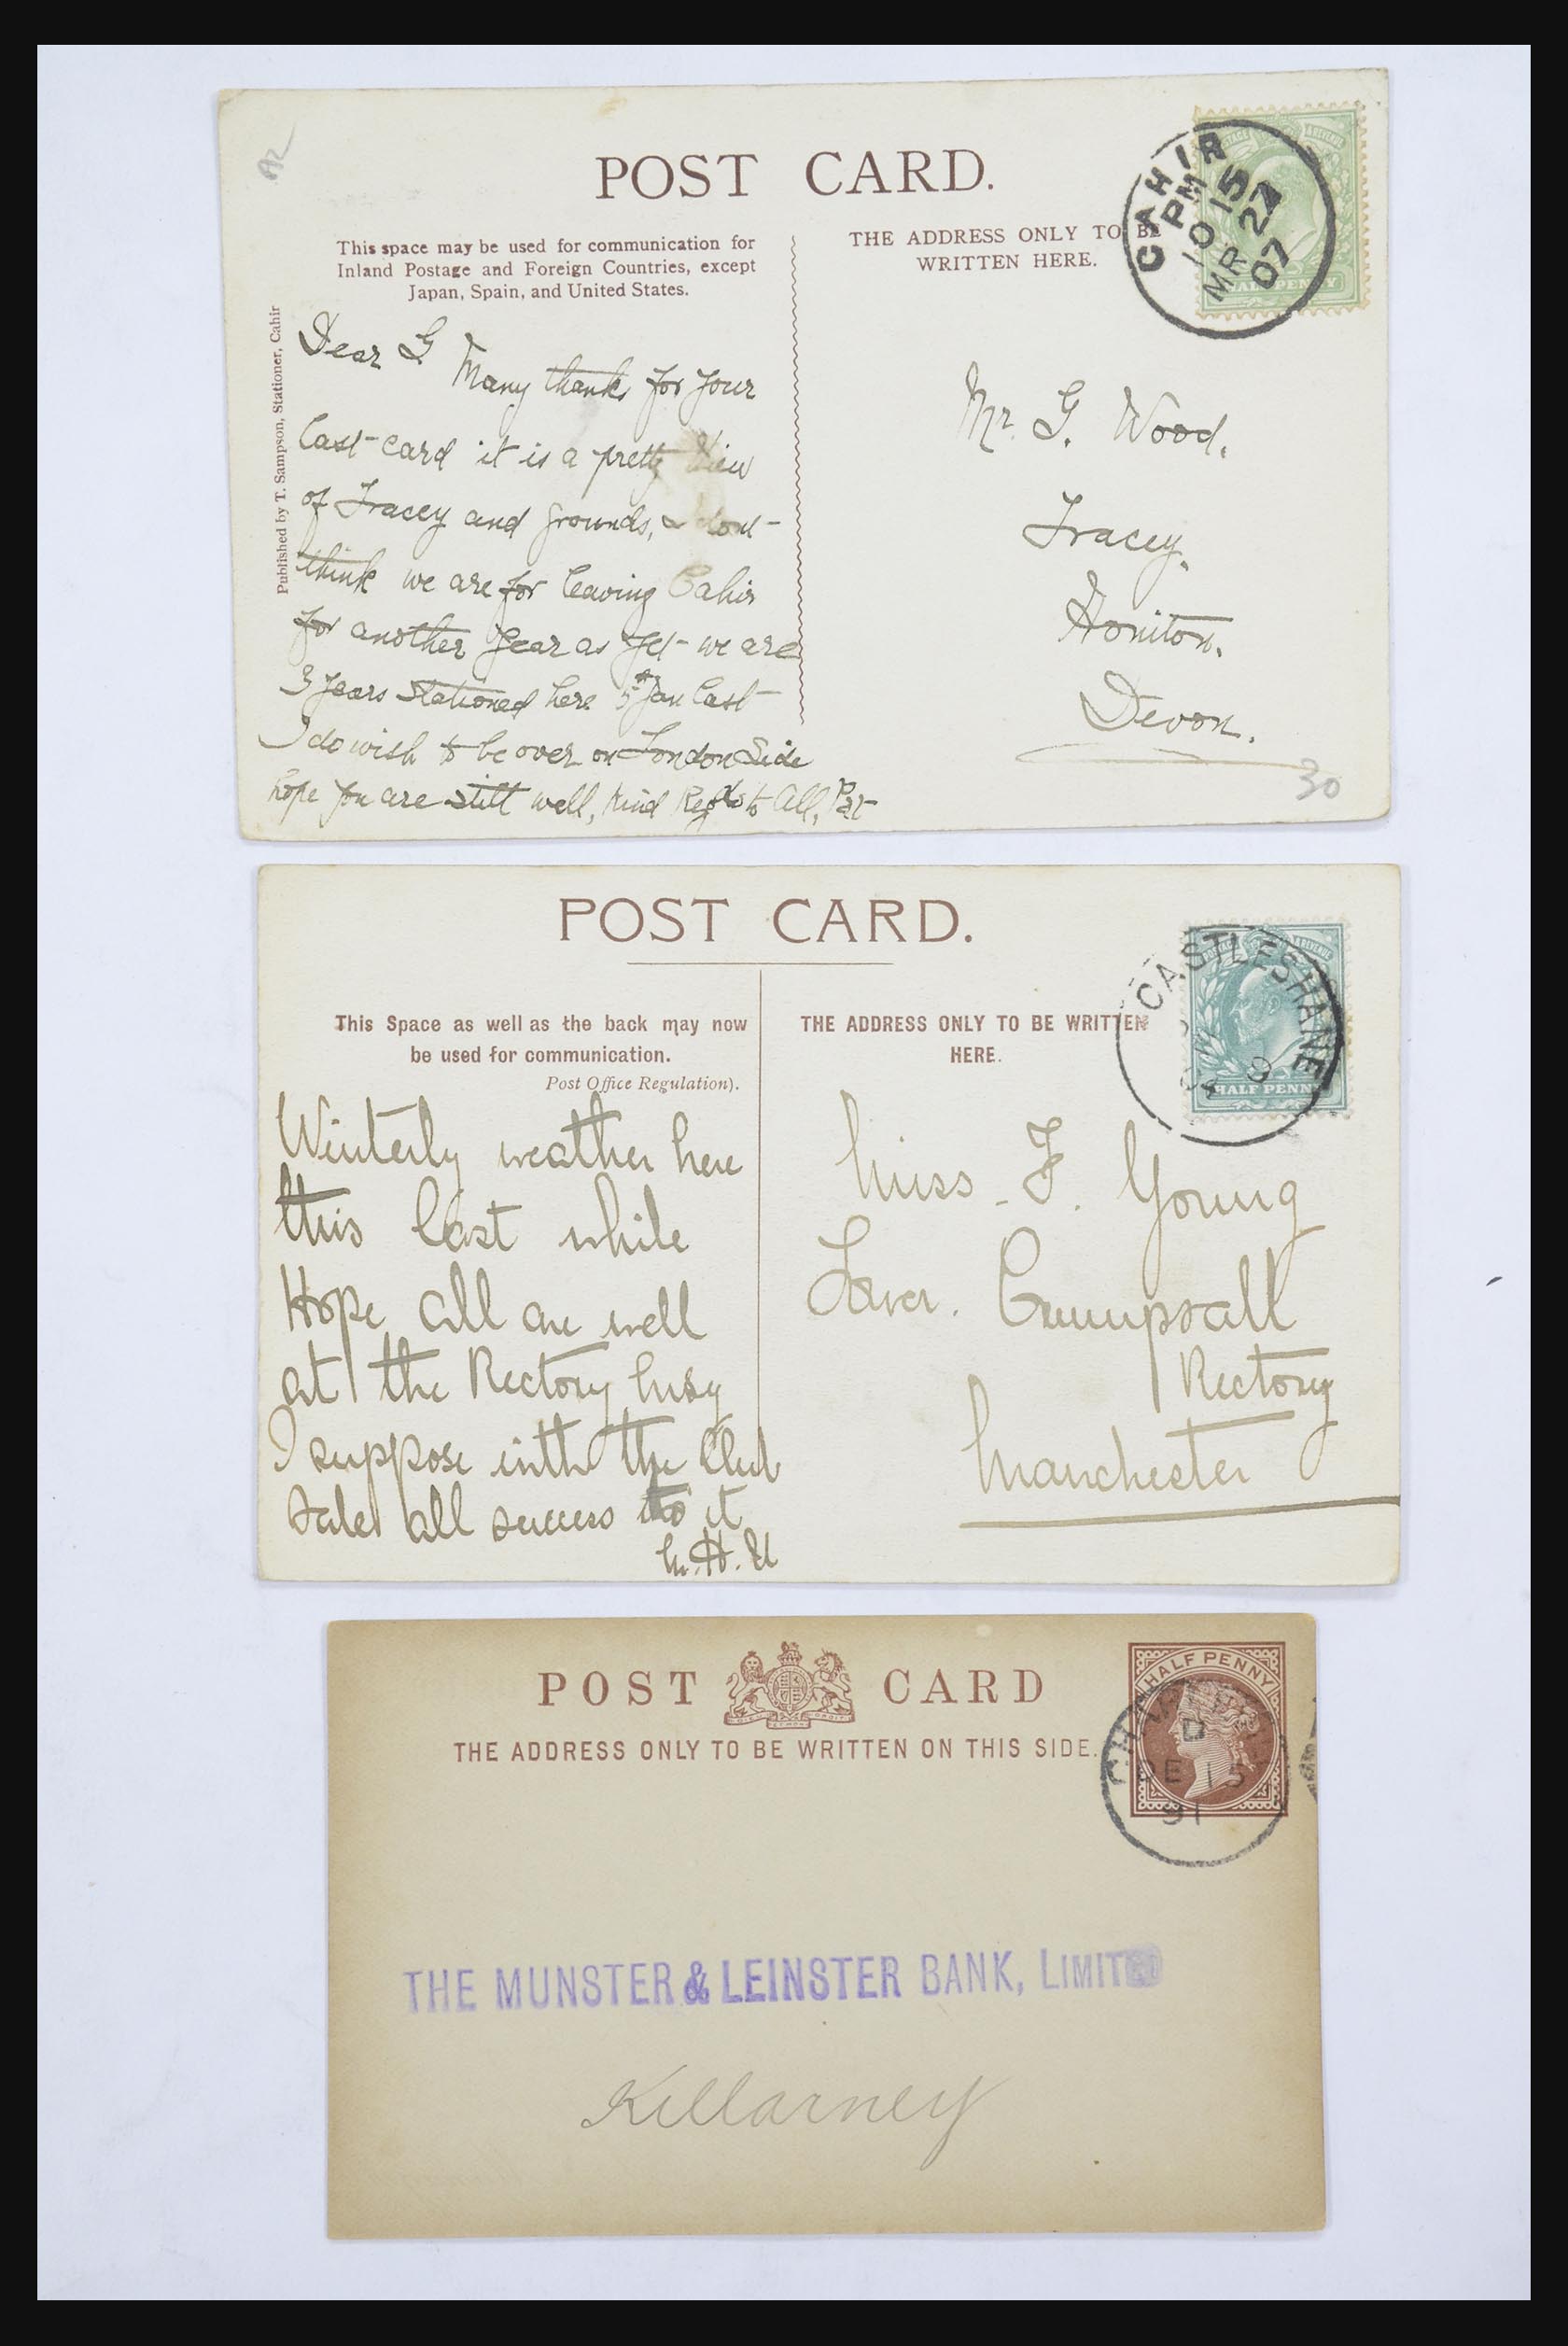 Az
POST CARD.
This space may be used for communication for
Inland Postage and Foreign Countries, except
Japan, Spain, and United States.
THE ADDRESS ONLY TO BE
WRITTEN HERE.
POSTAGE & REVENUE
HALF PENNY
CAHIR
PM
10 15
MR 24
07
Published by T. Sampson, Stationer, Cahir
Dear G
Many thanks for your
last card it is a pretty view
of Tracey and grounds, dont
think we are for leaving Cahir
for another year as yet we are
3 years stationed here 5th Jan last
I do wish to be over on London Side
hope you are still well, Kind Regds to All, Pat
Mr. G. Wood.
Tracey.
Honiton.
Devon.
30
POST CARD.
This Space as well as the back may now
be used for communication.
Post Office Regulation).
THE ADDRESS ONLY TO BE WRITTEN
HERE.
POSTAGE & REVENUE
HALF PENNY
CASTLESHANE
9
Winterly weather here
this last while
Hope all are well
at the Rectory busy
I suppose with the Club
Sale all success to it
M.H.
Miss F. Young
Lower Crumpsall
Rectory
Manchester
POST CARD
THE ADDRESS ONLY TO BE WRITTEN ON THIS SIDE.
HALF PENNY
D
DE 15
91
THE MUNSTER & LEINSTER BANK, LIMITED
Killarney